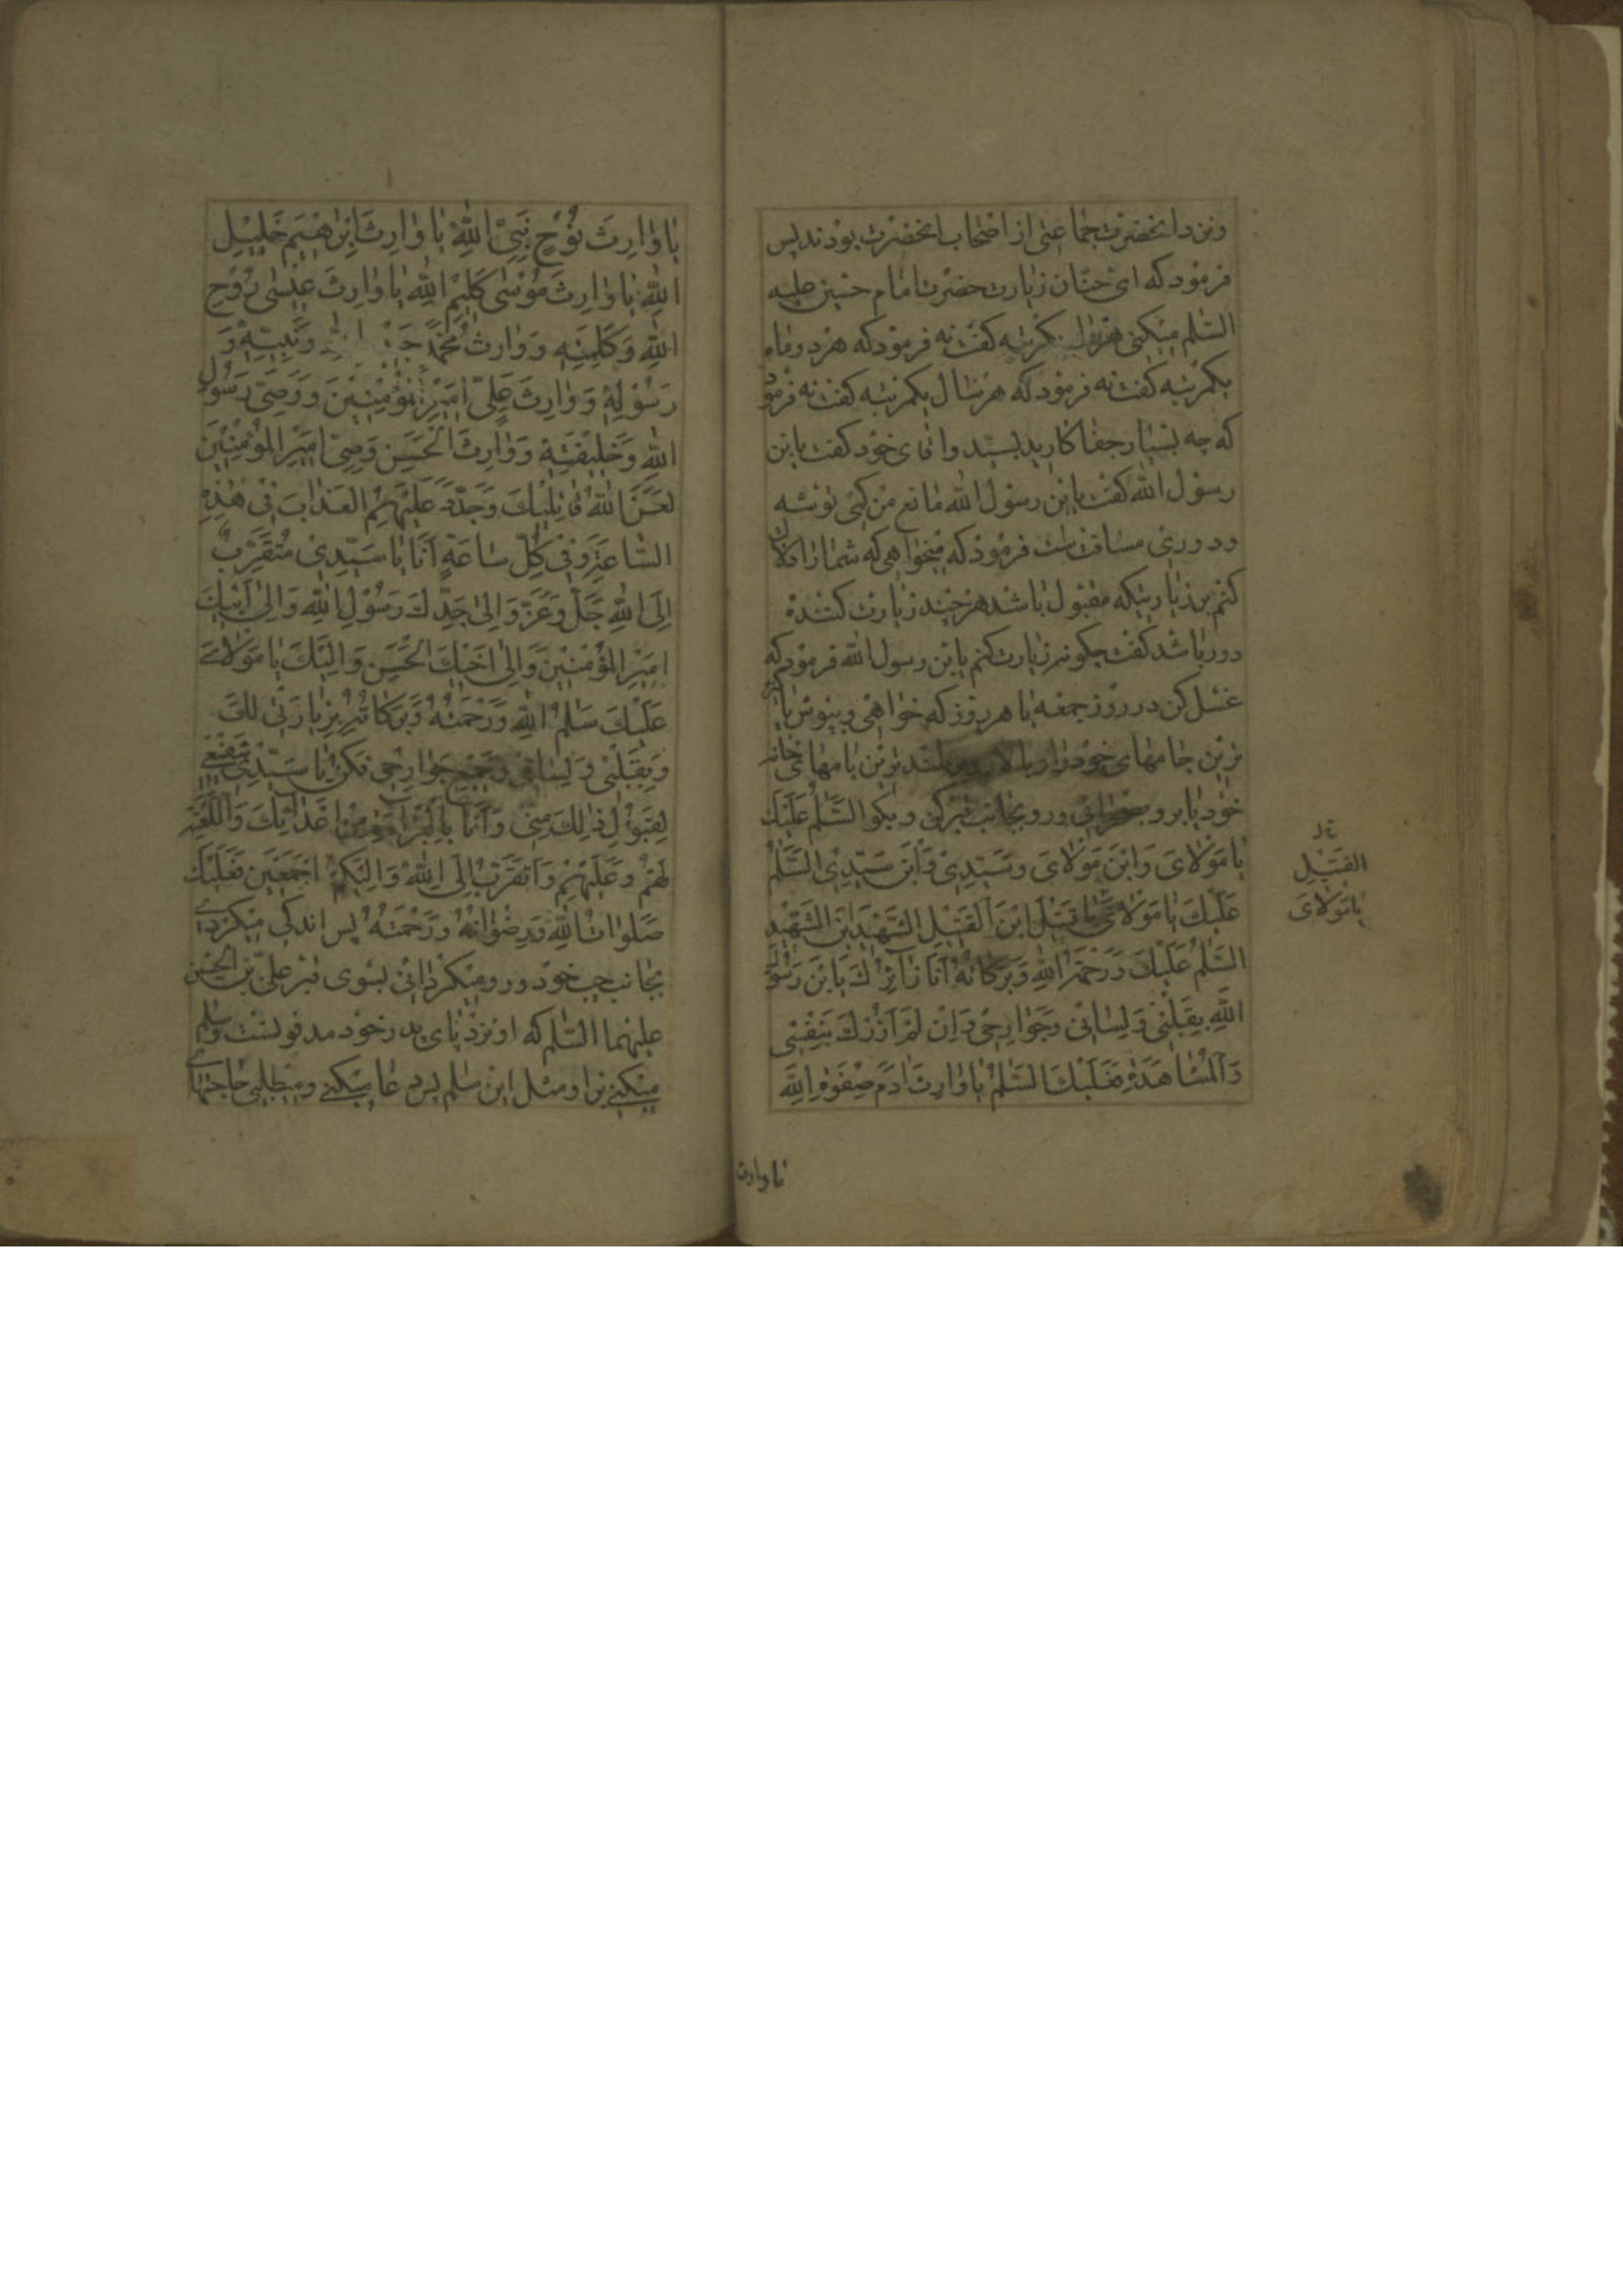 ونزد انحضرت جماعتی از اصحاب انحضرت بودند پس
فرمود که ای حنّان زیارت حضرت امام حسین علیه
السّلم میکنی هر ماه یکمرتبه کفت نه فرمود که هر دو ماه
یکمرتبه کفت نه فرمود که هر سال یکمرتبه کفت نه فرمود
که چه بسیار جفا کارید بسیّد و اقای خود کفت یابن
رسول الله کفت یابن رسول الله مانع من کمی توشه
و دوری مسافت است فرمود که میخواهی که شما را دلالت
کنم بر زیارتیکه مقبول باشد هر چند زیارت کننده
دور باشد کفت چکونه زیارت کنم یابن رسول الله فرمود که
غسل کن در روز جمعه یا هر روز که خواهی و بپوش پاکیزه
ترین جامهای خود را و بالا رو بر بلند ترین بامهای خانه
خود یا برو بصحرائی و رو بجانب قبر کن و بکو السَّلمُ عَلَیْكَ
یا مَوْلایَ وَابْنَ مَوْلایَ وَسَیِّدِیْ وَابْنَ سَیِّدِیْ السَّلٰمُ
عَلَیْكَ یا مَوْلایَ یا قَتِیْلَ ابْنَ الْقَتِیْلِ الشَّهِیْدَ بْنَ الشَّهِیْدِ
السَّلٰمُ عَلَیْكَ وَرَحْمَةُ اللهِ وَبَرَکاتُهُ اَنَا زآئِرُكَ یَابْنَ رَسُوْلِ
اللهِ بِقَلْبِیْ وَلِسَانِیْ وَجَوارِحِیْ وَاِنْ لَمْ اَزُرْكَ بِنَفْسِیْ
وَالْمُشاهَدَةِ فَعَلَیْكَ السَّلٰمُ یا وارِثَ اٰدَمَ صِفْوَةِ اللهِ
القَتِیْلِ
یا مَوْلایَ
یا وارث
یا وارِثَ نُوْحٍ نَبِیِّ اللهِ یا وارِثَ اِبْرٰهِیْمَ خَلِیْلِ
اللهِ یا وارِثَ مُوْسٰی کَلِیْمِ اللهِ یا وارِثَ عِیْسٰی رُوْحِ
اللهِ وَکَلِمَتِهِ وَوارِثَ مُحَمَّدٍ اللهِ وَنَبِیِّهِ وَ
رَسُوْلِهِ وَوارِثَ عَلِیٍّ اَمِیْرِ الْمُؤْمِنِیْنَ وَوَصِیِّ رَسُوْلِ
اللهِ وَخَلِیْفَتِهِ وَوارِثَ الْحَسَنِ وَصِیِّ اَمِیْرِ الْمُؤْمِنِیْنَ
لَعَنَ اللهُ قاتِلِیْكَ وَجَدَّدَ عَلَیْهِمُ الْعَذابَ فِیْ هٰذِهِ
السّاعَةِ وَفِیْ کُلِّ ساعَةٍ اَنَا یا سَیِّدِیْ مُتَقَرِّبٌ
اِلَی اللهِ جَلَّ وَعَزَّ وَاِلٰی جَدِّكَ رَسُوْلِ اللهِ وَاِلٰی اَبِیْكَ
اَمِیْرِ الْمُؤْمِنِیْنَ وَاِلٰی اَخِیْكَ الْحَسَنِ وَاِلَیْكَ یا مَوْلایَ
عَلَیْكَ سَلٰمُ اللهِ وَرَحْمَتُهُ وَبَرَکاتُهُ بِزِیارَتِیْ لَكَ
وَبِقَلْبِیْ وَلِسانِیْ وَجَمِیْعِ جَوارِحِیْ فَکُنْ یا سَیِّدِیْ شَفِیْعِیْ
لِقَبُوْلِ ذٰلِكَ مِنِّیْ وَاَنَا بِالْبَرآءَةِ مِنْ اَعْدآئِكَ وَاللَّعْنَةِ
لَهُمْ وَعَلَیْهِمْ وَاَتَقَرَّبُ اِلَی اللهِ وَاِلَیْکُمْ اَجْمَعِیْنَ فَعَلَیْكَ
صَلَواتُ اللهِ وَرِضْوانُهُ وَرَحْمَتُهُ پس اندکی میکردی
بجانب چپ خود و رو میکردانی بسوی قبر علیّ بن الحسین
علیهما السّلم که او نزد پای پدر خود مدفونست وسلم
میکنی بر او مثل این سلم پس دعا میکنی و میطلبی حاجتهای